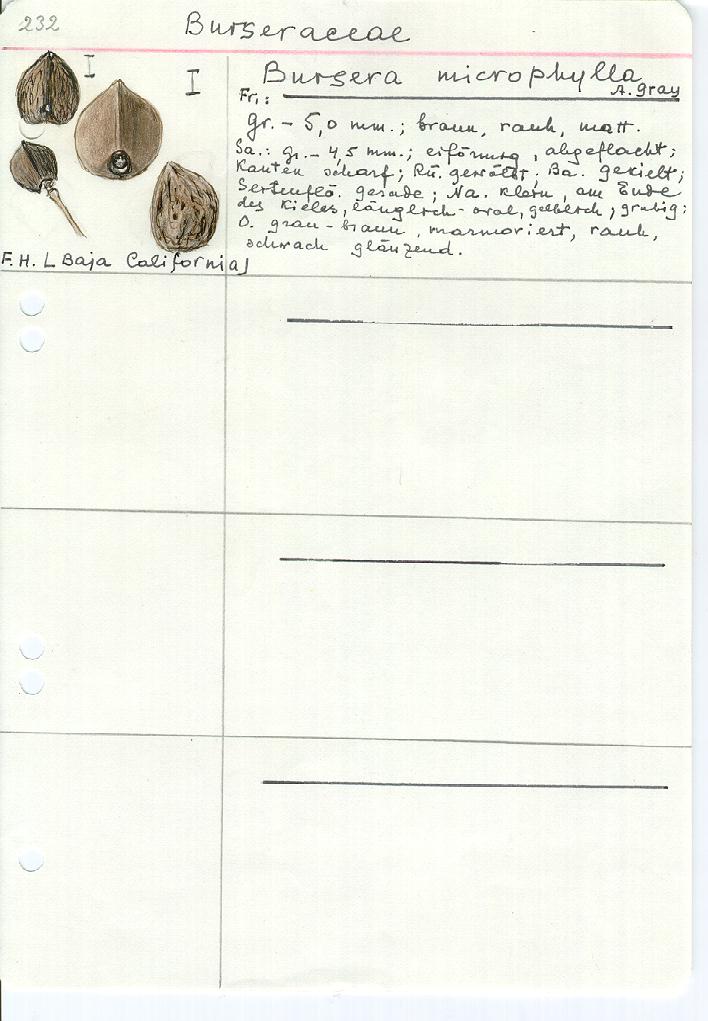 232
Burseraceae
Bursera microphylla
A. Gray
Fr.:
gr. - 5,0 mm.; braun, rauh, matt.
Sa.: gr. - 4,5 mm.; eiförmig, abgeflacht;
Kanten scharf; Rü. gewölbt. Ba. gekielt;
Seitenflä. gerade; Na. klein, am Ende
des Kieles, länglich-oval, gelblich, grubig;
O. grau-braun, marmoriert, rauh,
schwach glänzend.
F.H. (Baja California)